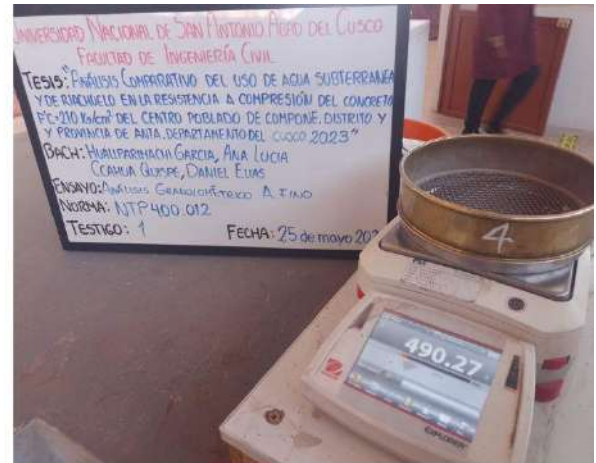 UNIVERSIDAD NACIONAL DE SAN ANTONIO ABAD DEL CUSCO
FACULTAD DE INGENIERÍA CIVIL
TESIS: "ANÁLISIS COMPARATIVO DEL USO DE AGUA SUBTERRANEA
Y DE RIACHUELO EN LA RESISTENCIA A COMPRESIÓN DEL CONCRETO
F'C=210 Kg/cm² DEL CENTRO POBLADO DE COMPONE, DISTRITO Y
Y PROVINCIA DE ANTA, DEPARTAMENTO DEL CUSCO 2023"
BACH: HUALLPARIMACHI GARCIA, ANA LUCIA
CCAHUA QUISPE, DANIEL ELIAS
ENSAYO: ANÁLISIS GRANULOMÉTRICO A. FINO
NORMA: NTP 400.012
TESTIGO: 1
FECHA: 25 de mayo 202
4
490.27
EXPLORER